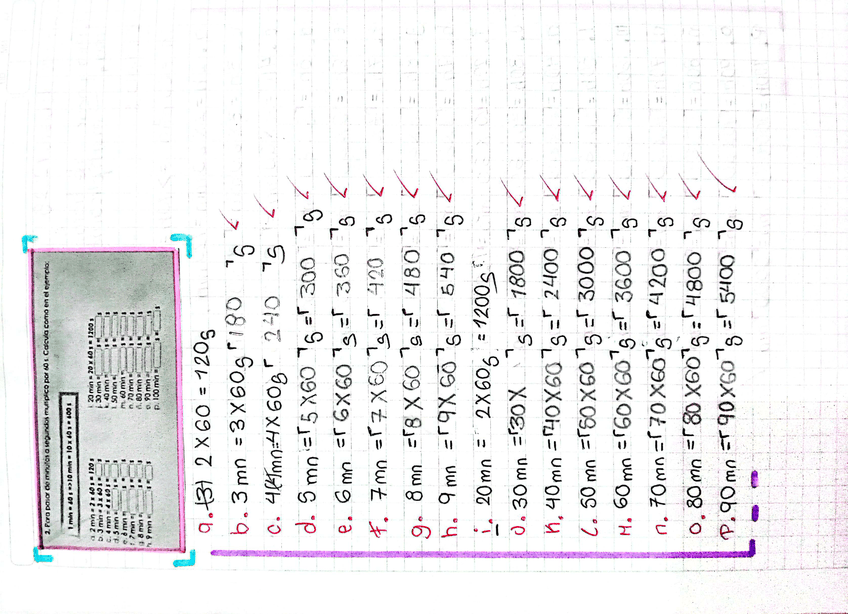 2. Para pasar de minutos a segundos multiplica por 60 s. Calcula como en el ejemplo:
1 min = 60 s => 10 min = 10 x 60 s = 600 s
a. 2 min = 2 x 60 s = 120 s
b. 3 min = 3 x 60 s =
c. 4 min = 4 x 60 s =
d. 5 min =
e. 6 min =
f. 7 min =
g. 8 min =
h. 9 min =
i. 20 min = 20 x 60 s = 1200 s
j. 30 min =
k. 40 min =
l. 50 min =
m. 60 min =
n. 70 min =
o. 80 min =
o. 90 min =
p. 100 min =
a. 2 X 60 = 120s
b. 3 mn = 3 X 60s 180 s
c. 4mn=4X60s 240 s
d. 5 mn = 5 X 60 s = 300 s
e. 6 mn = 6 X 60 s = 360 s
f. 7 mn = 7 X 60 s = 420 s
g. 8 mn = 8 X 60 s = 480 s
h. 9 mn = 9 X 60 s = 540 s
i. 20 mn = 2X60s = 1200s
J. 30 mn = 30 X s = 1800 s
K. 40 mn = 40 X 60 s = 2400 s
L. 50 mn = 50 X 60 s = 3000 s
M. 60 mn = 60 X 60 s = 3600 s
n. 70 mn = 70 X 60 s = 4200 s
o. 80 mn = 80 X 60 s = 4800 s
P. 90 mn = 90 X 60 s = 5400 s